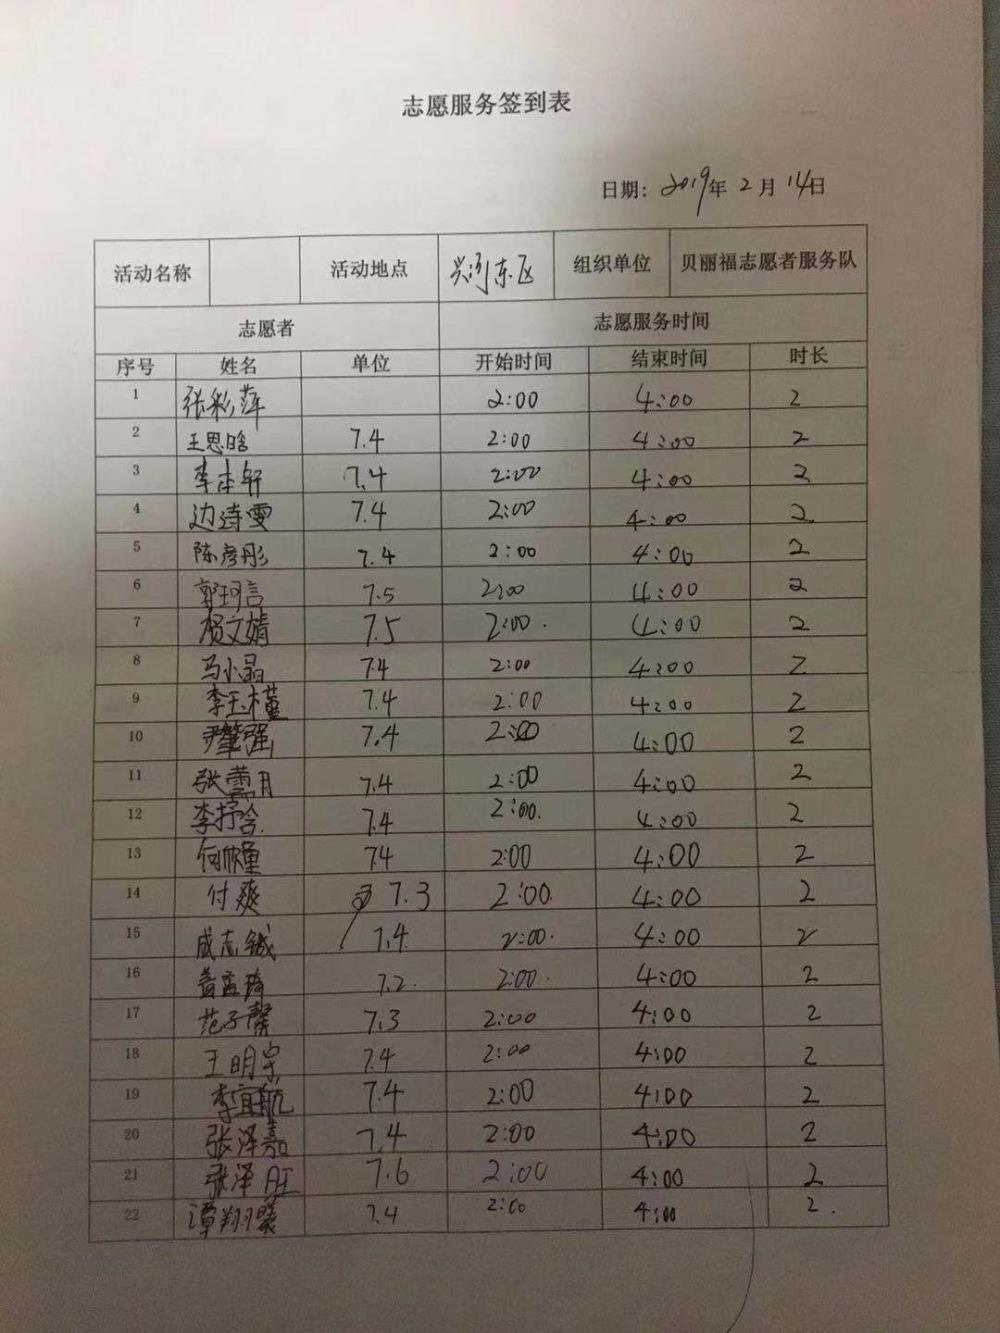 志愿服务签到表
日期：2019年2月14日
活动名称 活动地点 兴河东区 组织单位 贝丽福志愿者服务队
志愿者 志愿服务时间
序号 姓名 单位 开始时间 结束时间 时长
1 张彩萍 2:00 4:00 2
2 王思晗 7.4 2:00 4:00 2
3 李本轩 7.4 2:00 4:00 2
4 边诗雯 7.4 2:00 4:00 2
5 陈彦彤 7.4 2:00 4:00 2
6 郭珂言 7.5 2:00 4:00 2
7 杨文婧 7.5 2:00. 4:00 2
8 马小晶 7.4 2:00 4:00 2
9 李玉槿 7.4 2:00 4:00 2
10 尹肇强 7.4 2:00 4:00 2
11 张 月 7.4 2:00 4:00 2
12 李抒含. 7.4 2:00. 4:00 2
13 何 74 2:00 4:00 2
14 付爽 7.3 2:00. 4:00 2
15 成志铖 7.4 2:00. 4:00 2
16 7.2. 2:00. 4:00 2
17 范子馨 7.3 2:00 4:00 2
18 王明宗 7.4 2:00 4:00 2
19 李宜航 7.4 2:00 4:00 2
20 张泽嘉 7.4 2:00 4:00 2
21 张泽旺 7.6 2:00 4:00 2
22 谭翔 7.4 2:00 4:00 2.